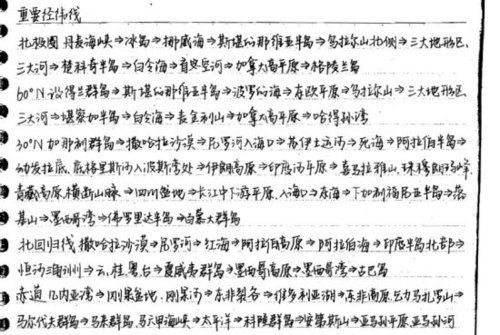 重要经纬线
北极圈 丹麦海峡→冰岛→挪威海→斯堪的那维亚半岛→乌拉尔山北侧→三大地形区、
三大河→楚科奇半岛→白令海→育空河→加拿大高平原→格陵兰岛
60°N 设得兰群岛→斯堪的那维亚半岛→波罗的海→东欧平原→乌拉尔山→三大地形区
三大河→堪察加半岛→白令海→麦金利山→加拿大高平原→哈得孙湾
30°N 加那利群岛→撒哈拉沙漠→尼罗河入海口→苏伊士运河→死海→阿拉伯半岛→
幼发拉底、底格里斯河入波斯湾处→伊朗高原→印度河平原→喜马拉雅山、珠穆朗玛峰
青藏高原、横断山脉→四川盆地→长江中下游平原、入海口→东海→下加利福尼亚半岛→落
基山→墨西哥湾→佛罗里达半岛→百慕大群岛
北回归线 撒哈拉沙漠→尼罗河→红海→阿拉伯高原→阿拉伯海→印度半岛北部→
恒河三角洲→云、桂、粤、台→夏威夷群岛→墨西哥高原→墨西哥湾→古巴岛
赤道 几内亚湾→刚果盆地、刚果河→东非裂谷→维多利亚湖→东非高原、乞力马扎罗山→
马尔代夫群岛→马来群岛、马六甲海峡→太平洋→科隆群岛→安第斯山→亚马孙平原、亚马孙河